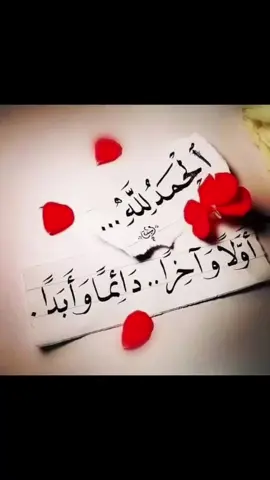 اَلْحَمْدُ لِلَّهِ...
أَوَّلاً وَ آخِرًا.. دَائِمًا وَ أَبَدًا.